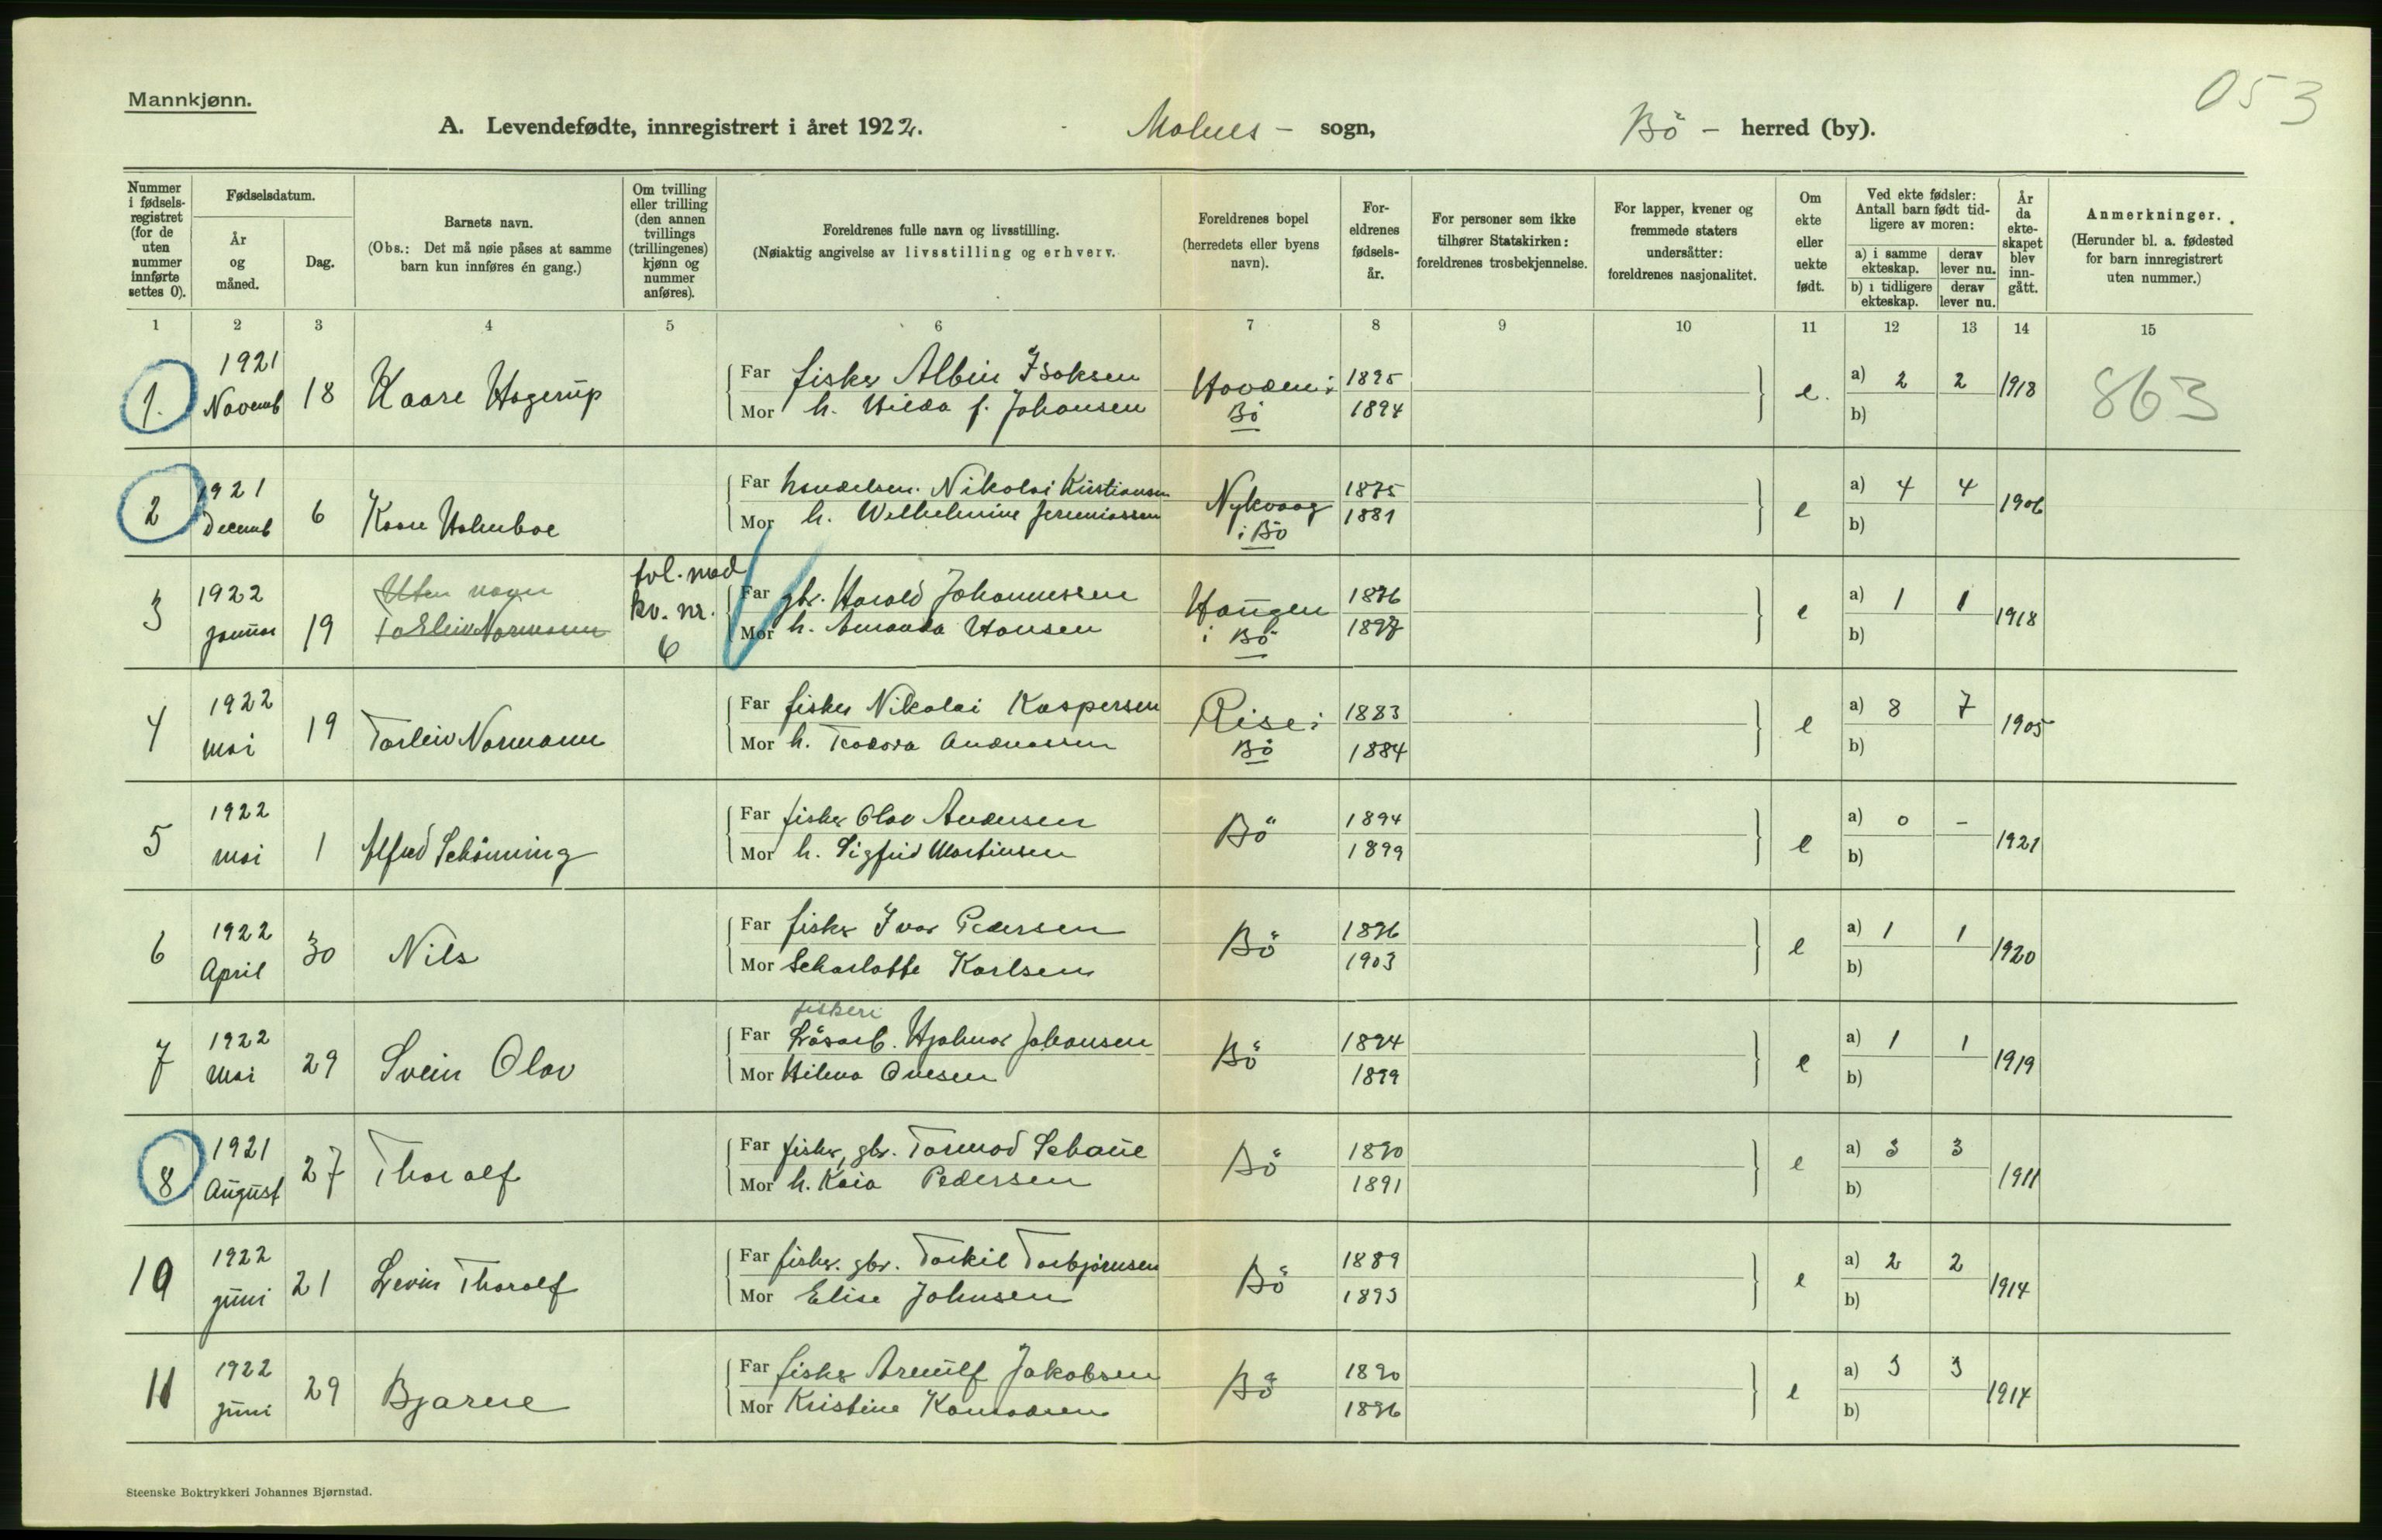 053
Mannkjønn.
A. Levendefødte, innregistrert i året 1922. Malnes - sogn, Bö - herred (by).
Nummer i fødselsregistret (for de uten nummer innførte settes 0).
Fødselsdatum.
År og måned.
Dag.
Barnets navn.
(Obs.: Det må nøie påses at samme barn kun innføres én gang.)
Om tvilling eller trilling (den annen tvillings (trillingenes) kjønn og nummer anføres).
Foreldrenes fulle navn og livsstilling.
(Nøiaktig angivelse av livsstilling og erhverv.
Foreldrenes bopel (herredets eller byens navn).
Foreldrenes fødselsår.
For personer som ikke tilhører Statskirken: foreldrenes trosbekjennelse.
For lapper, kvener og fremmede staters undersåtter: foreldrenes nasjonalitet.
Om ekte eller uekte født.
Ved ekte fødsler: Antall barn født tidligere av moren:
a) i samme ekteskap. derav lever nu.
b) i tidligere ekteskap. derav lever nu.
År da ekteskapet blev inngått.
Anmerkninger.
(Herunder bl. a. fødested for barn innregistrert uten nummer.)
1 2 3 4 5 6 7 8 9 10 11 12 13 14 15
1. 1921 Novemb 18 Kaare Hagerup
Far fisker Albin Isaksen Hovden i 1895 e. a) 2 2 1918 863
Mor h. Hilda f. Johansen Bö 1894 b)
2 1921 Decemb 6 Kaare Holmboe
Far handelsm. Nikolai Kristiansen Nykvaag 1875 e a) 4 4 1906
Mor h. Wilhelmine Jeremiassen i Bö 1881 b)
3 1922 januar 19 Uten navn Torleiv Normann tvl. med kv. nr. 6
Far gbr. Harald Johannessen Haugen 1896 e a) 1 1 1918
Mor h. Amanda Hansen i Bö 1897 b)
4 1922 mai 19 Torleiv Normann
Far fisker Nikolai Kaspersen Rise i 1883 e a) 8 7 1905
Mor h. Teodora Andreassen Bö 1884 b)
5 1922 mai 1 Alfred Schönning
Far fisker Olav Andersen Bö 1894 e a) 0 - 1921
Mor h. Sigfrid Martinsen 1899 b)
6 1922 April 30 Nils
Far fisker Ivar Pedersen Bö 1896 e a) 1 1 1920
Mor Scharlotte Karlsen 1903 b)
fiskeri
7 1922 Mai 29 Svein Olav
Far Løsarb. Hjalmar Johansen Bö 1894 e a) 1 1 1919
Mor Hilma Ovesen 1899 b)
8 1921 August 27 Thoralf
Far fisker, gbr. Tormod Schaue Bö 1890 e a) 3 3 1911
Mor h. Kaia Pedersen 1891 b)
10 1922 juni 21 Levin Thoralf
Far fisker. gbr. Torkil Torbjörnsen Bö 1889 e a) 2 2 1914
Mor Elise Johnsen 1893 b)
11 1922 juni 29 Bjarne
Far fisker Arnulf Jakobsen Bö 1890 e a) 3 3 1914
Mor Kristine Konradsen 1896 b)
Steenske Boktrykkeri Johannes Bjørnstad.